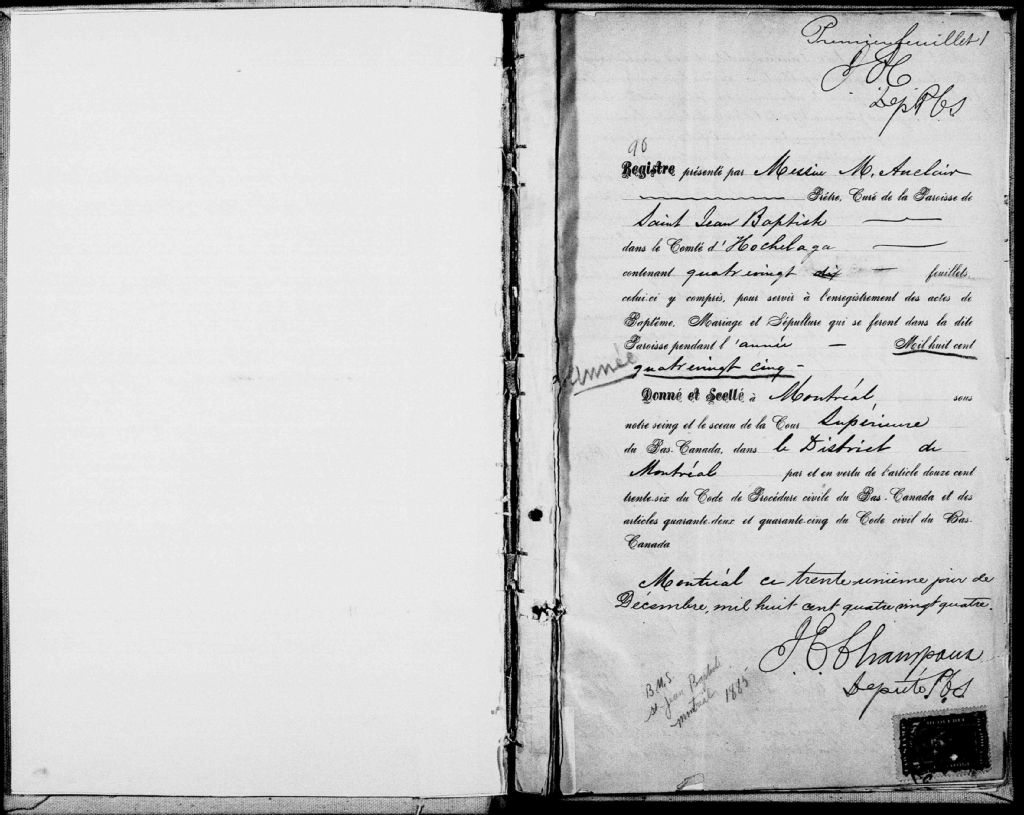 Premier feuillet 1
J H
Dep P C S
90
Registre présenté par Messire M. Auclair
Prêtre, Curé de la Paroisse de
Saint Jean Baptiste
dans le Comté d'Hochelaga
contenant quatre vingt dix feuillets,
celui-ci y compris, pour servir à l'enregistrement des actes de
Baptême, Mariage et Sépulture qui se feront dans la dite
Paroisse pendant l'année Mil huit cent
Année
quatre vingt cinq -
Donné et Scellé à Montréal, sous
notre seing et le sceau de la Cour Supérieure
du Bas-Canada, dans le District de
Montréal par et en vertu de l'article douze cent
trente-six du Code de Procédure civile du Bas-Canada et des
articles quarante-deux et quarante-cinq du Code civil du Bas-
Canada
Montréal ce trente unième jour de
Décembre, mil huit cent quatre vingt quatre.
J E Champoux
Député P C S
B.M.S
St Jean Baptiste
montréal 1885